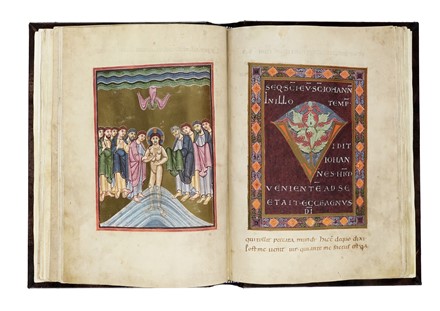 SEQ SCI EV SC IOHANN
IN ILLO TEMP
V IDIT
IOHAN
NES IHM
VENIENTE AD SE
ET AIT ECCE AGNVS
DI
qui tollit peccata mundi. hic e de quo dixi
Post me uenit uir qui ante me factus est